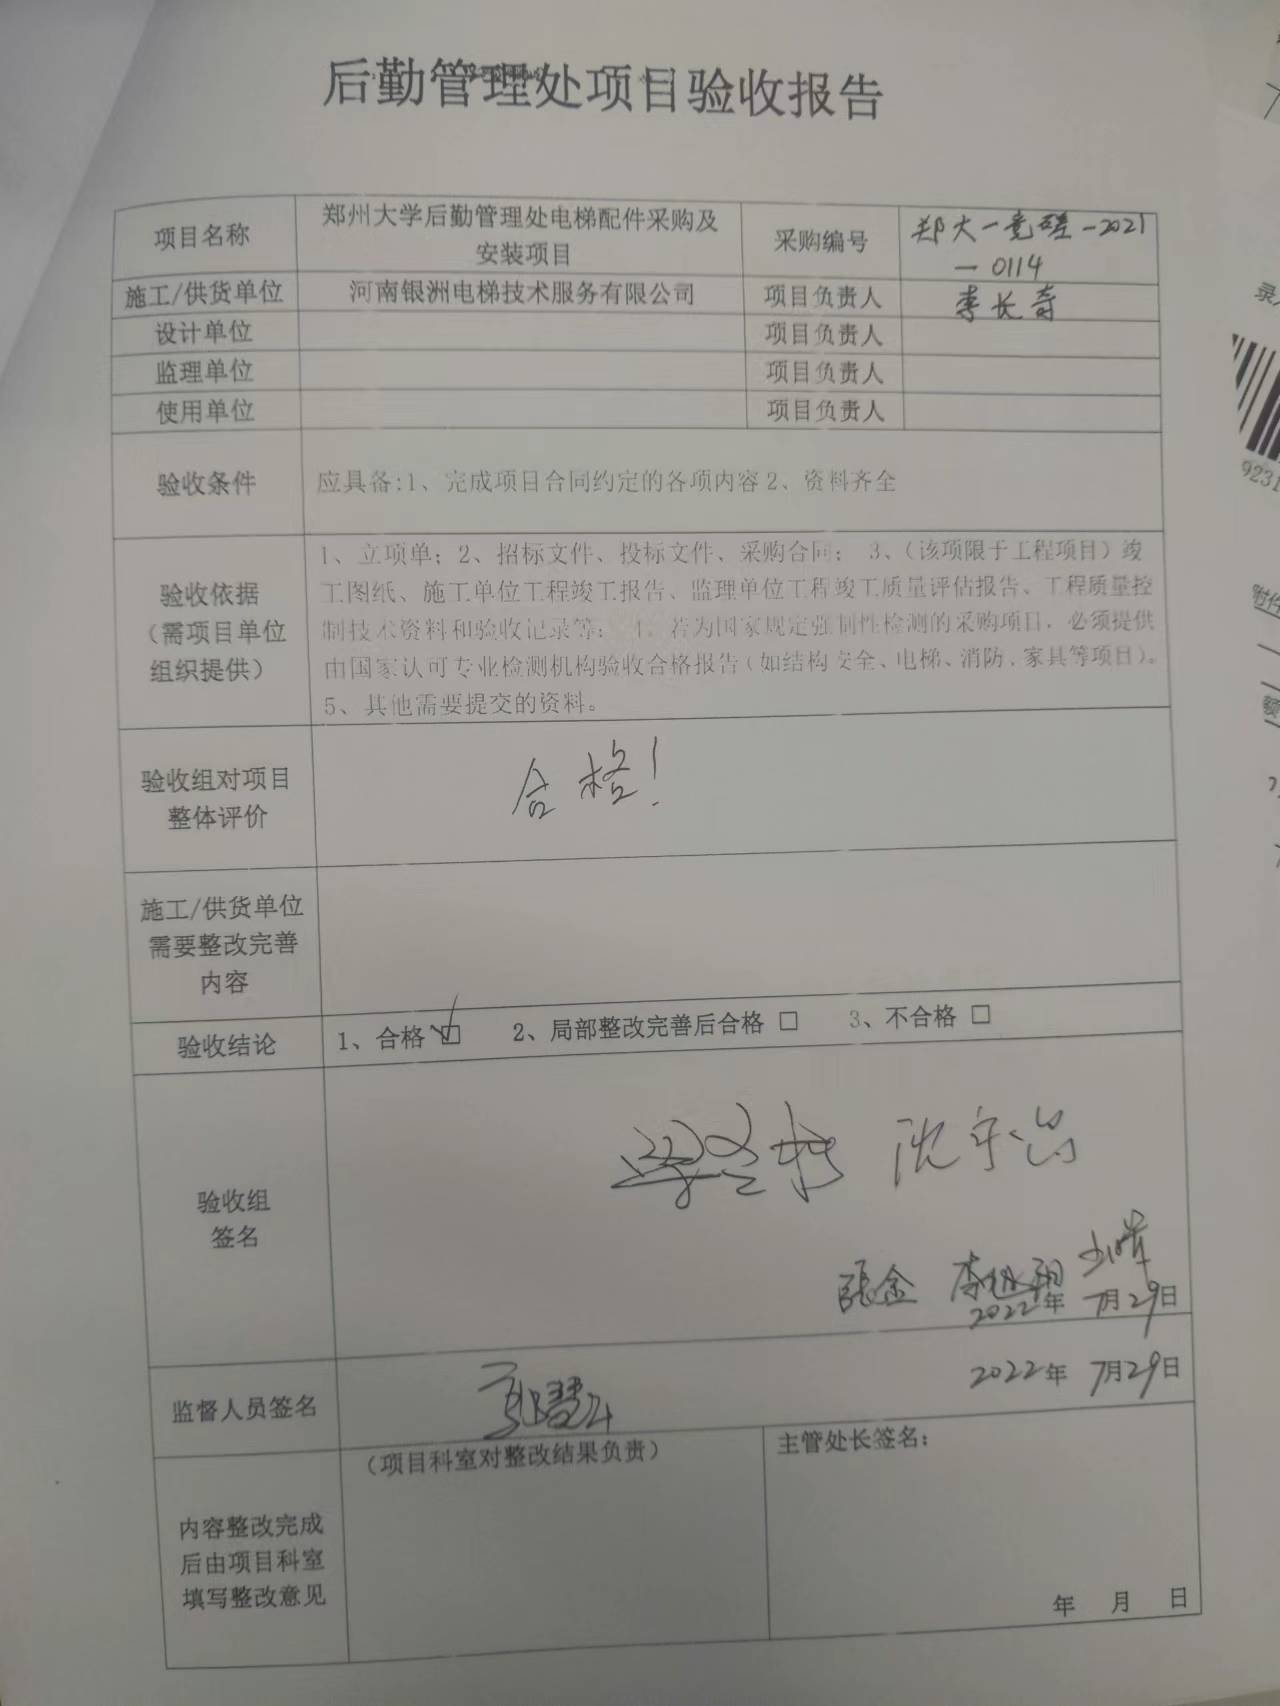 后勤管理处项目验收报告
项目名称
郑州大学后勤管理处电梯配件采购及
安装项目
采购编号
郑大-竞磋-2021
-0114
施工/供货单位
河南银洲电梯技术服务有限公司
项目负责人
李长奇
设计单位
项目负责人
监理单位
项目负责人
使用单位
项目负责人
验收条件
应具备:1、完成项目合同约定的各项内容2、资料齐全
验收依据
（需项目单位
组织提供）
1、立项单；2、招标文件、投标文件、采购合同； 3、（该项限于工程项目）竣
工图纸、施工单位工程竣工报告、监理单位工程竣工质量评估报告、工程质量控
制技术资料和验收记录等； 4、若为国家规定强制性检测的采购项目，必须提供
由国家认可专业检测机构验收合格报告（如结构安全、电梯、消防、家具等项目）。
5、其他需要提交的资料。
验收组对项目
整体评价
合格！
施工/供货单位
需要整改完善
内容
验收结论
1、合格 ☑ 2、局部整改完善后合格 □ 3、不合格 □
验收组
签名
沈守治
張金
2022年 7月29日
监督人员签名
2022年 7月29日
内容整改完成
后由项目科室
填写整改意见
（项目科室对整改结果负责）
主管处长签名：
年 月 日
9231